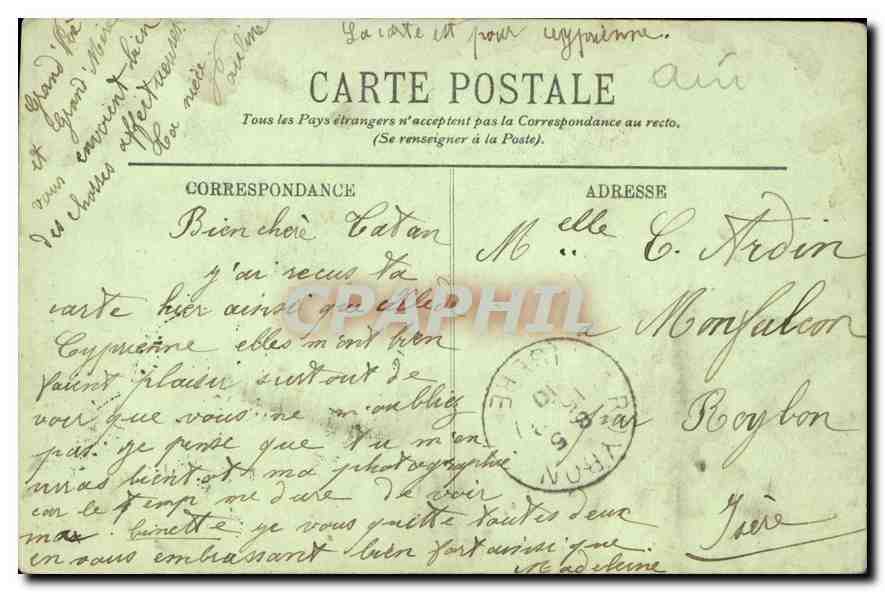 La carte est pour cyprienne.
Ain
CARTE POSTALE
Tous les Pays étrangers n'acceptent pas la Correspondance au recto.
(Se renseigner à la Poste).
CORRESPONDANCE
Bien chère Tatan
j'ai recus ta
carte hier ainsi que celle de
Cyprienne elles m'ont bien
faient plaisir surtout de
voir que vous ne m'oubliez
pas ge pense que tu m'en
curras bientot ma photographie
car le temp me dure de voir
ma binette ge vous quitte toutes deux
en vous embrassant bien fort ainsi que
Madeleine
Grand Pè
et Grand Mère
vous envoient bien
des chosses affectueuses
Ta nièce Pauline
ADRESSE
Melle C. Ardin
a Monfalcon
par Roybon
Isère
ROYBON
ISÈRE
CPAPHIL